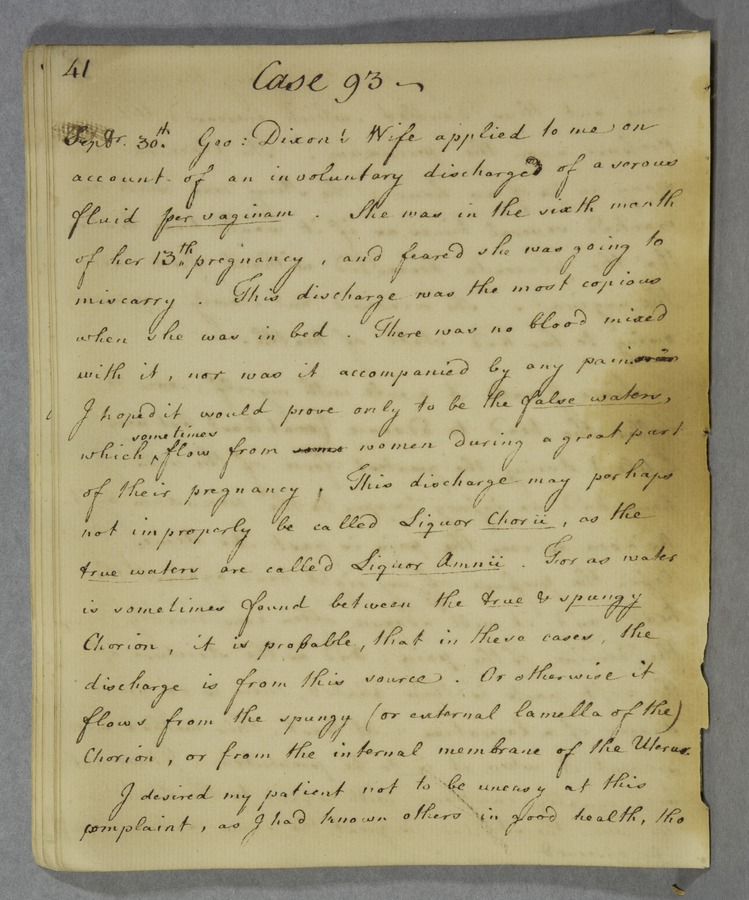 41
Case 93
Sepbr. 30th. Geo: Dixon's Wife applied to me on
account of an involuntary discharge of a serous
fluid per vaginam. She was in the sixth month
of her 13th. pregnancy, and feared she was going to
miscarry. This discharge was the most copious
when she was in bed. There was no blood mixed
with it, nor was it accompanied by any pain
I hoped it would prove only to be the false waters,
which sometimes flow from some women during a great part
of their pregnancy. This discharge may perhaps
not improperly be called Liquor Chorii, as the
true waters are called Liquor Amnii. For as water
is sometimes found between the true & spungy
Chorion, it is probable, that in these cases, the
discharge is from this source. Or otherwise it
flows from the spungy (or external lamella of the)
Chorion, or from the internal membrane of the Uterus.
I desired my patient not to be uneasy at this
complaint, as I had known others in good health, tho